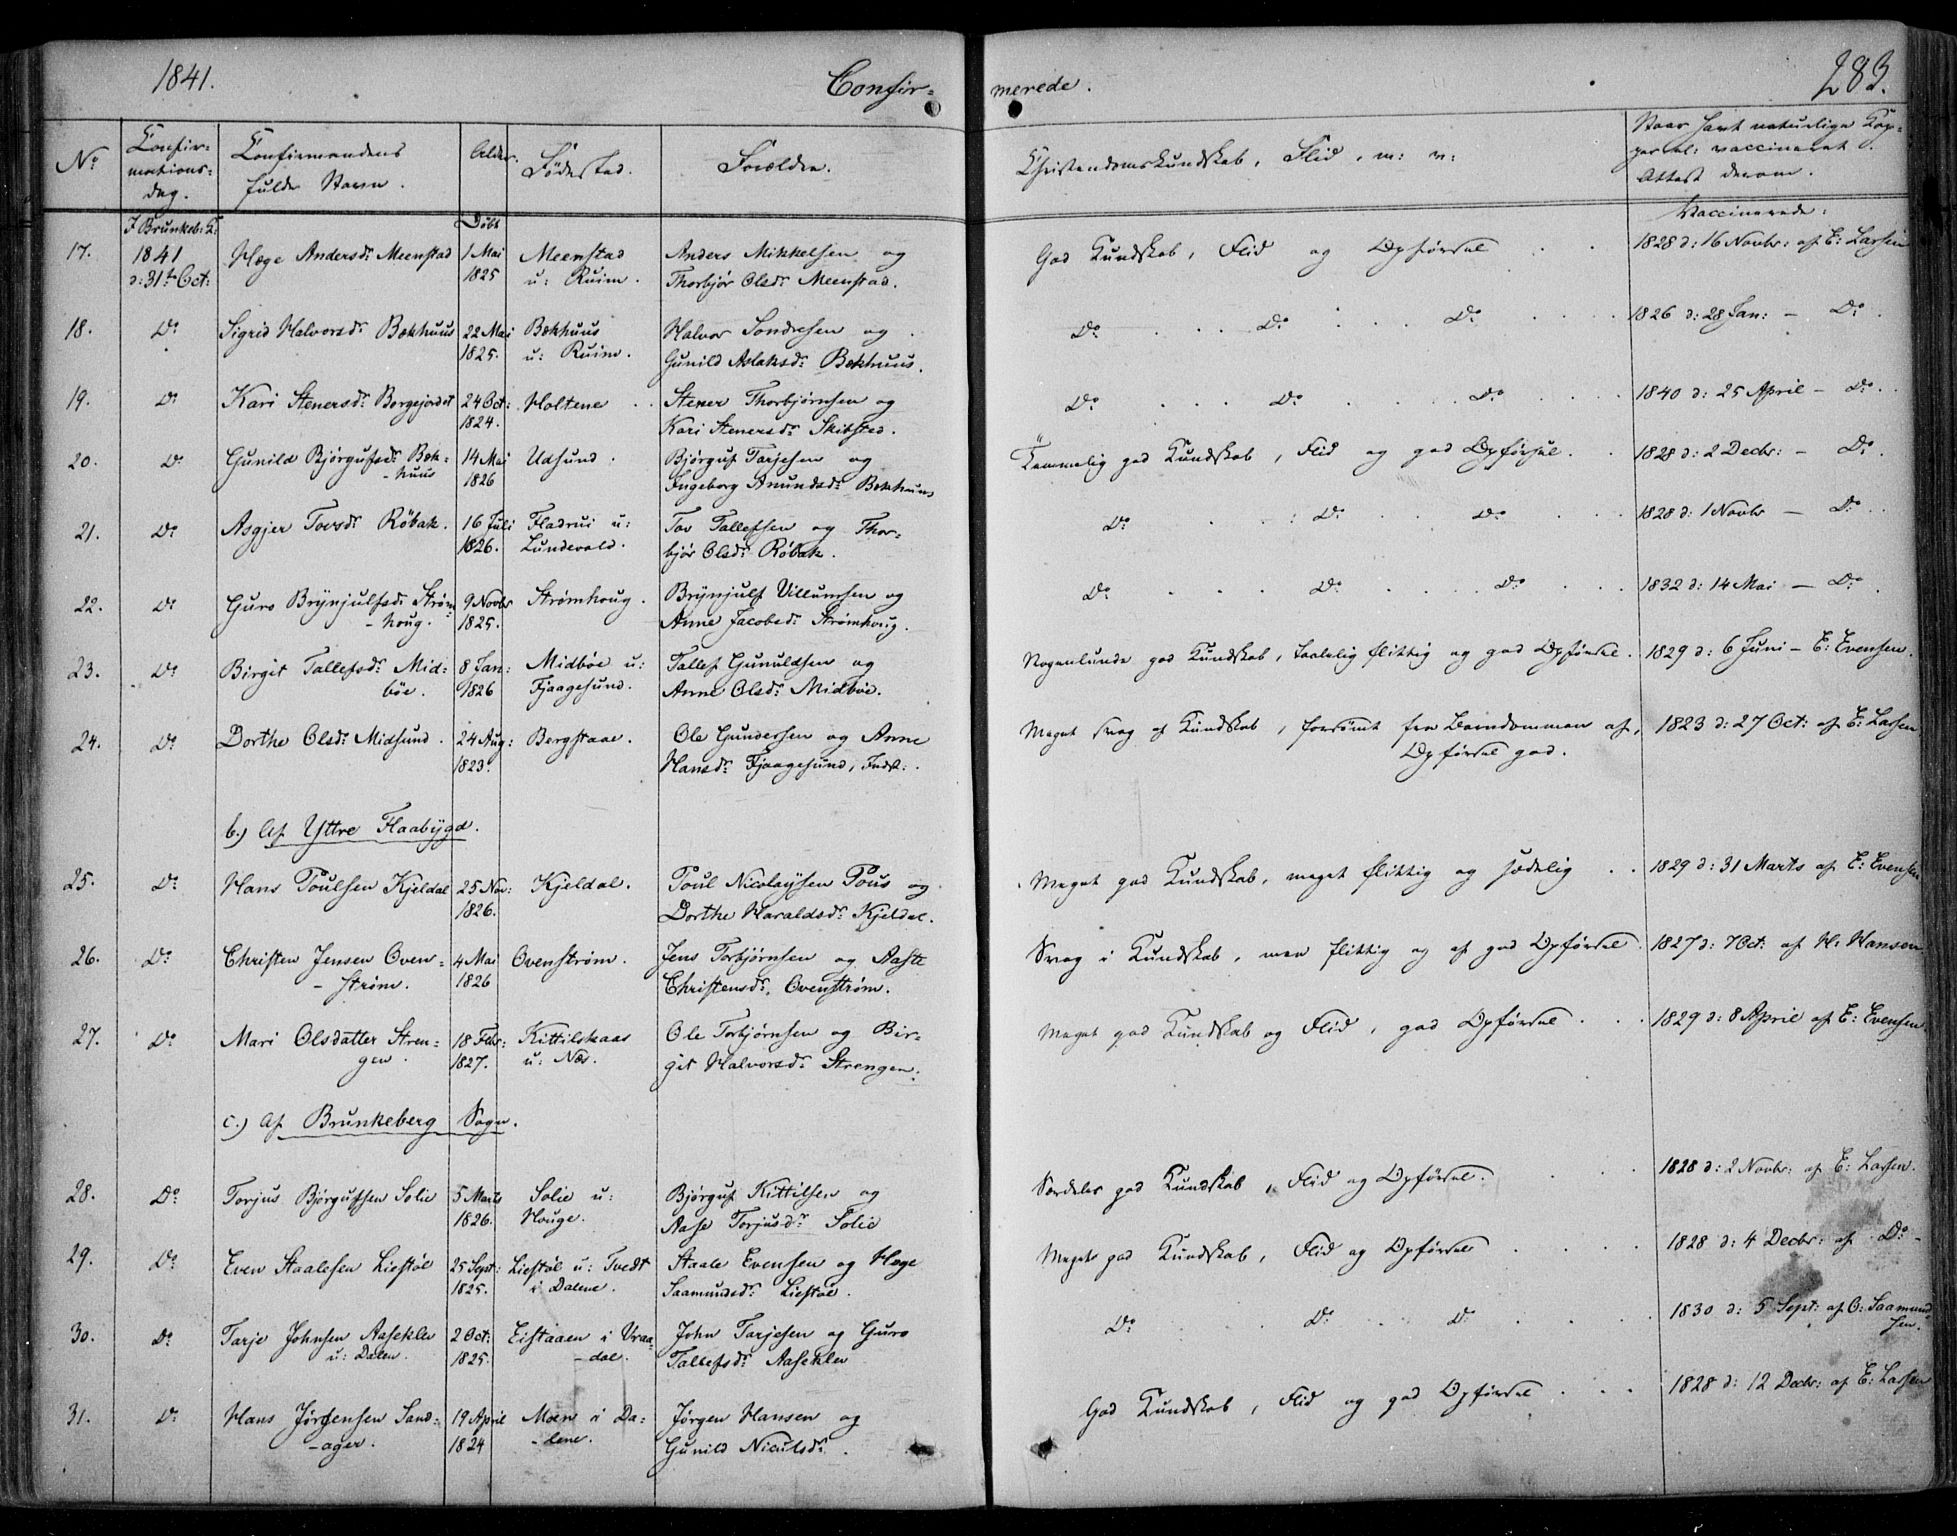 1841. Confir- merede. 283.
No Confir- mations- dag. Confirmandens fulde Navn. Alder. Fødested. Forældre. Christendomskundskab, Flid, m: v: Naar havt naturlige Kop- per el: vaccineret Attest derom.
I Brunkeb: K: Døbt Vaccinerede:
17. 1841 d: 31te Oct: Hæge Andersdr Meenstad 1 Mai 1825 Meenstad u: Ruim. Anders Mikkelsen og Thorbjør Olsdr Meenstad. God Kundskab, Flid og Opførsel . . 1828 d: 16 Novbr: af E: Larsen
18. Do Sigrid Halvorsdr Bækhuus 22 Mai 1825. Bækhuus u: Ruim. Halvor Sondresen og Gunild Aslaksdr Bækhuus. Do . . . Do . . . Do . . . . 1826 d: 28 Jan: - Do .
19. Do Kari Stenersdr Bergejordet 24 Oct: 1824. Holtene . . Stener Thorbjørnsen og Kari Stenersdr Skibsted. Do . . . Do . . . Do . . . . 1840 d: 25 April - Do . .
20. Do Gunild Bjørgufsdr Bæk- -huus 14 Mai 1826 Udsund . Bjørguf Tarjesen og Ingeborg Anundsdr Bækhuus Temmelig god Kundskab, Flid og god Opførsel. . 1828 d: 2 Decbr: - Do .
21. Do Asgjer Tovsdr Røbak. 16 Juli 1826. Fladrui u: Lundevald. Tov Tallefsen og Thor- bjør Olsdr Røbak. Do . . : Do . . Do . . . 1828 d: 1 Novbr - Do . .
22. Do Guro Brynjulfsdr Strøm- -houg. 9 Novbr 1825. Strømhoug . Brynjulf Villumsen og Anne Jacobsdr Strømhoug. Do . . . . Do . . . . Do . . . 1832 d: 14 Mai - Do .
23. Do Birgit Tallefsdr Mid- bøe. 8 Jan: 1826 Midbøe u: Fjaagesund. Tallef Gunuldsen og Anne Olsdr Midbøe. Nogenlunde god Kundskab, taalelig flittig og god Opførsel. 1829 d: 6 Juni - E: Evensen.
24. Do Dorthe Olsdr Midsund . 24 Aug: 1823. Bergstaae. Ole Gundersen og Anne Hansdr Fjaagesund, Indst: . Meget svag af Kundskab, forsømt fra Barndommen af, Opførsel god. 1823 d: 27 Oct: af E: Larsen
b.) Af Yttre Flaabygd.
25. Do Hans Poulsen Kjeldal 25 Nov: 1826. Kjeldal. Poul Nicolaysen Pous og Dorthe Haraldsdr Kjeldal. Meget god Kundskab, meget flittig og sædelig . . 1829 d: 31 Marts af E: Evensen
26. Do Christen Jensen Oven- -strøm. 4 Mai 1826 Ovenstrøm. Jens Torbjørnsen og Aaste Christensdr, Ovenstrøm. Svag i Kundskab, men flittig og af god Opførsel. 1827 d: 7 Oct: af H. Hansen
27. Do Mari Olsdatter Stren- gen . 18 Febr: 1827. Kittilskaas u: Næs. Ole Torbjørnsen og Bir- git Halvorsdr Strengen. Meget god Kundskab og Flid, god Opførsel . . . 1829 d: 8 April af E: Evensen.
c.) Af Brunkeberg Sogn.
28. Do Torjus Bjørgufsen Solie 5 Marts 1826. Solie u: Houge. Bjørguf Kittilsen og Aase Torjusdr Solie Særdeles god Kundskab, Flid og Opførsel. . . 1828 d: 2 Novbr: af E: Larsen.
29. Do Even Staalesen Liestøl 25 Sept: 1825. Liestøl u: Tvedt i Dalene. Staale Evensen og Hæge Saamundsdr Liestøl. Meget god Kundskab, Flid og Opførsel . . . . 1828 d: 4 Decbr: af Do -
30. Do Tarje Johnsen Aaseklev u: Dalen. 2 Oct: 1825. Eistaaen i Vraa- -dal. John Tarjesen og Guro Tallefsdr Aaseklev Do . . . Do . . Do . . . . 1830 d: 5 Sept: af O: Saamund- sen.
31. Do Hans Jørgensen Sand- -ager. 19 April 1824 Moen i Da- -lene. Jørgen Hansen og Gunild Niculsdr . God Kundskab, Flid og god Opførsel . . . 1828 d: 12 Decbr: af E: Larsen